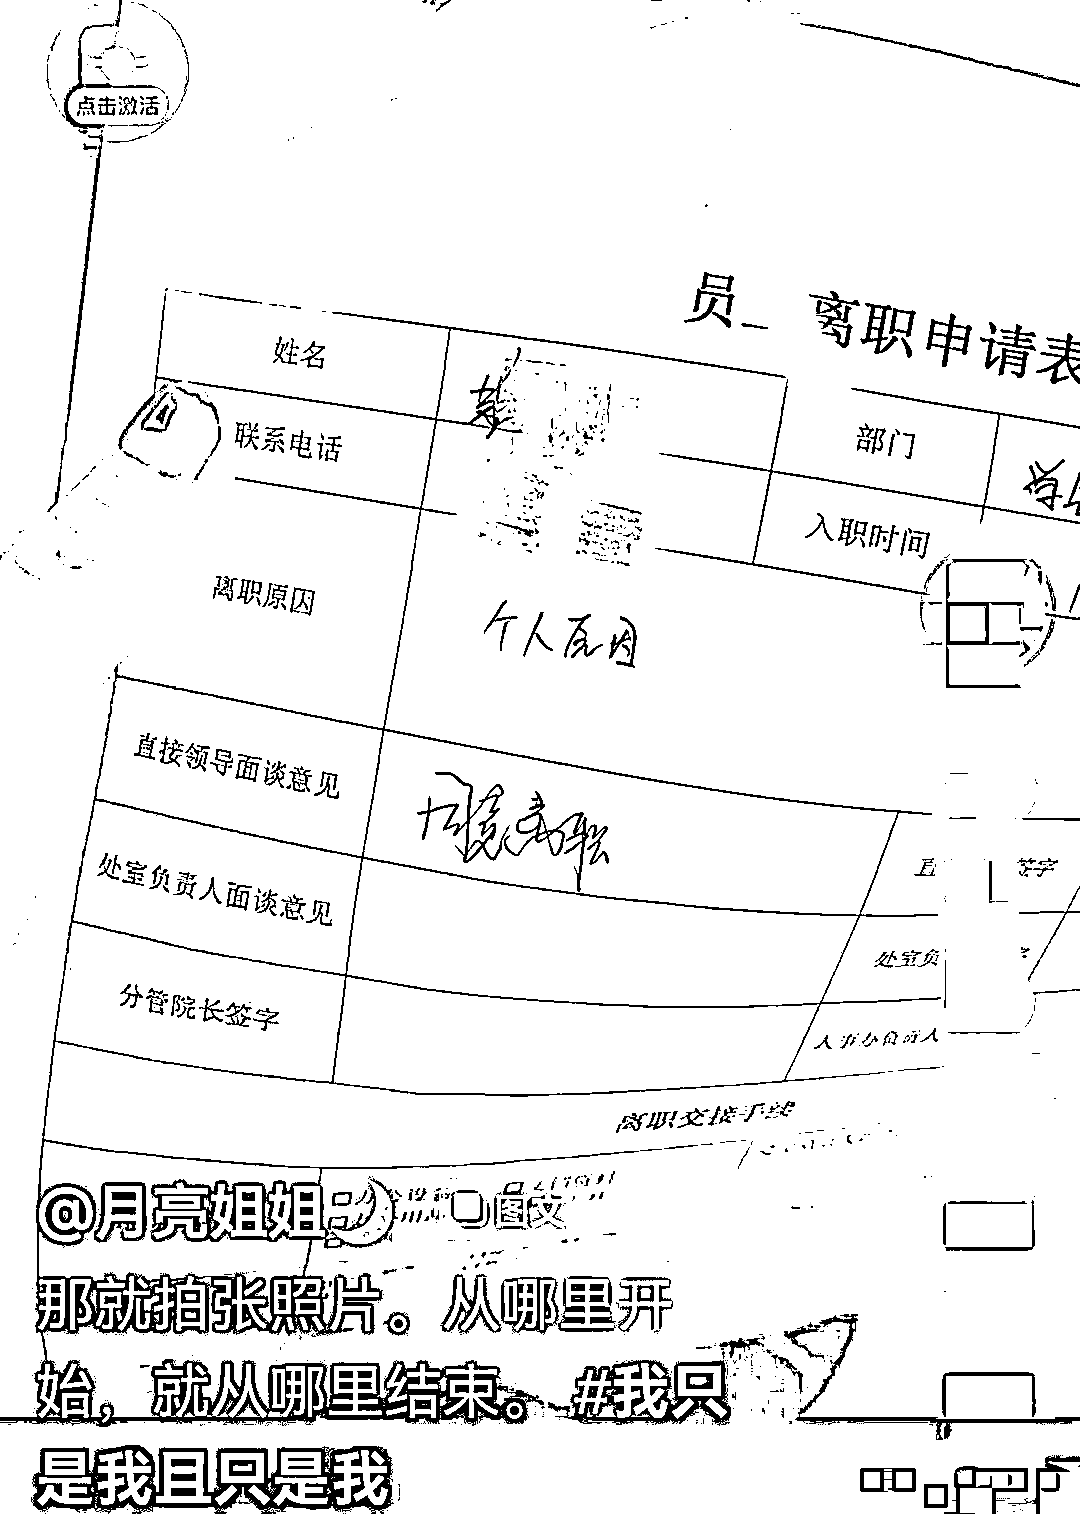 点击激活
员 离职申请表
姓名
部门
联系电话
入职时间
离职原因
个人原因
直接领导面谈意见
同意离职
签字
处室负责人面谈意见
处室负
分管院长签字
人事办负责人
离职交接手续
@月亮姐姐🌙 图文
那就拍张照片。从哪里开
始，就从哪里结束。 #我只
是我且只是我